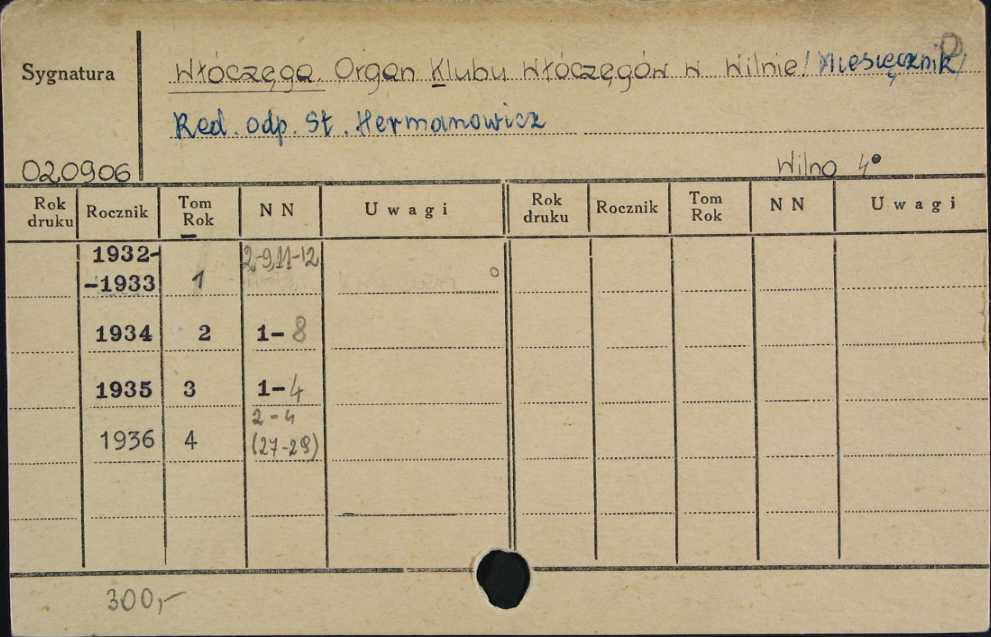 Sygnatura
Włóczęga Organ Klubu Włóczęgów w Wilnie/Miesięcznik/
Red. odp. St. Hermanowicz
020906
Wilno 4°
Rok druku Rocznik Tom Rok NN Uwagi Rok druku Rocznik Tom Rok NN Uwagi
1932- 2-9,11-12
-1933 1
1934 2 1-8
1935 3 1-4
2-4
1936 4 (27-29)
300,-